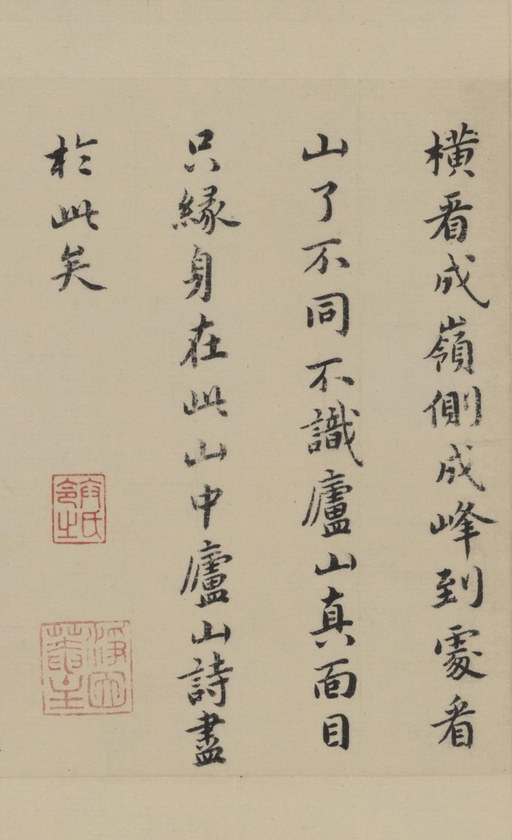 橫看成嶺側成峰到處看
山了不同不識廬山真面目
只緣身在此山中廬山詩盡
於此矣